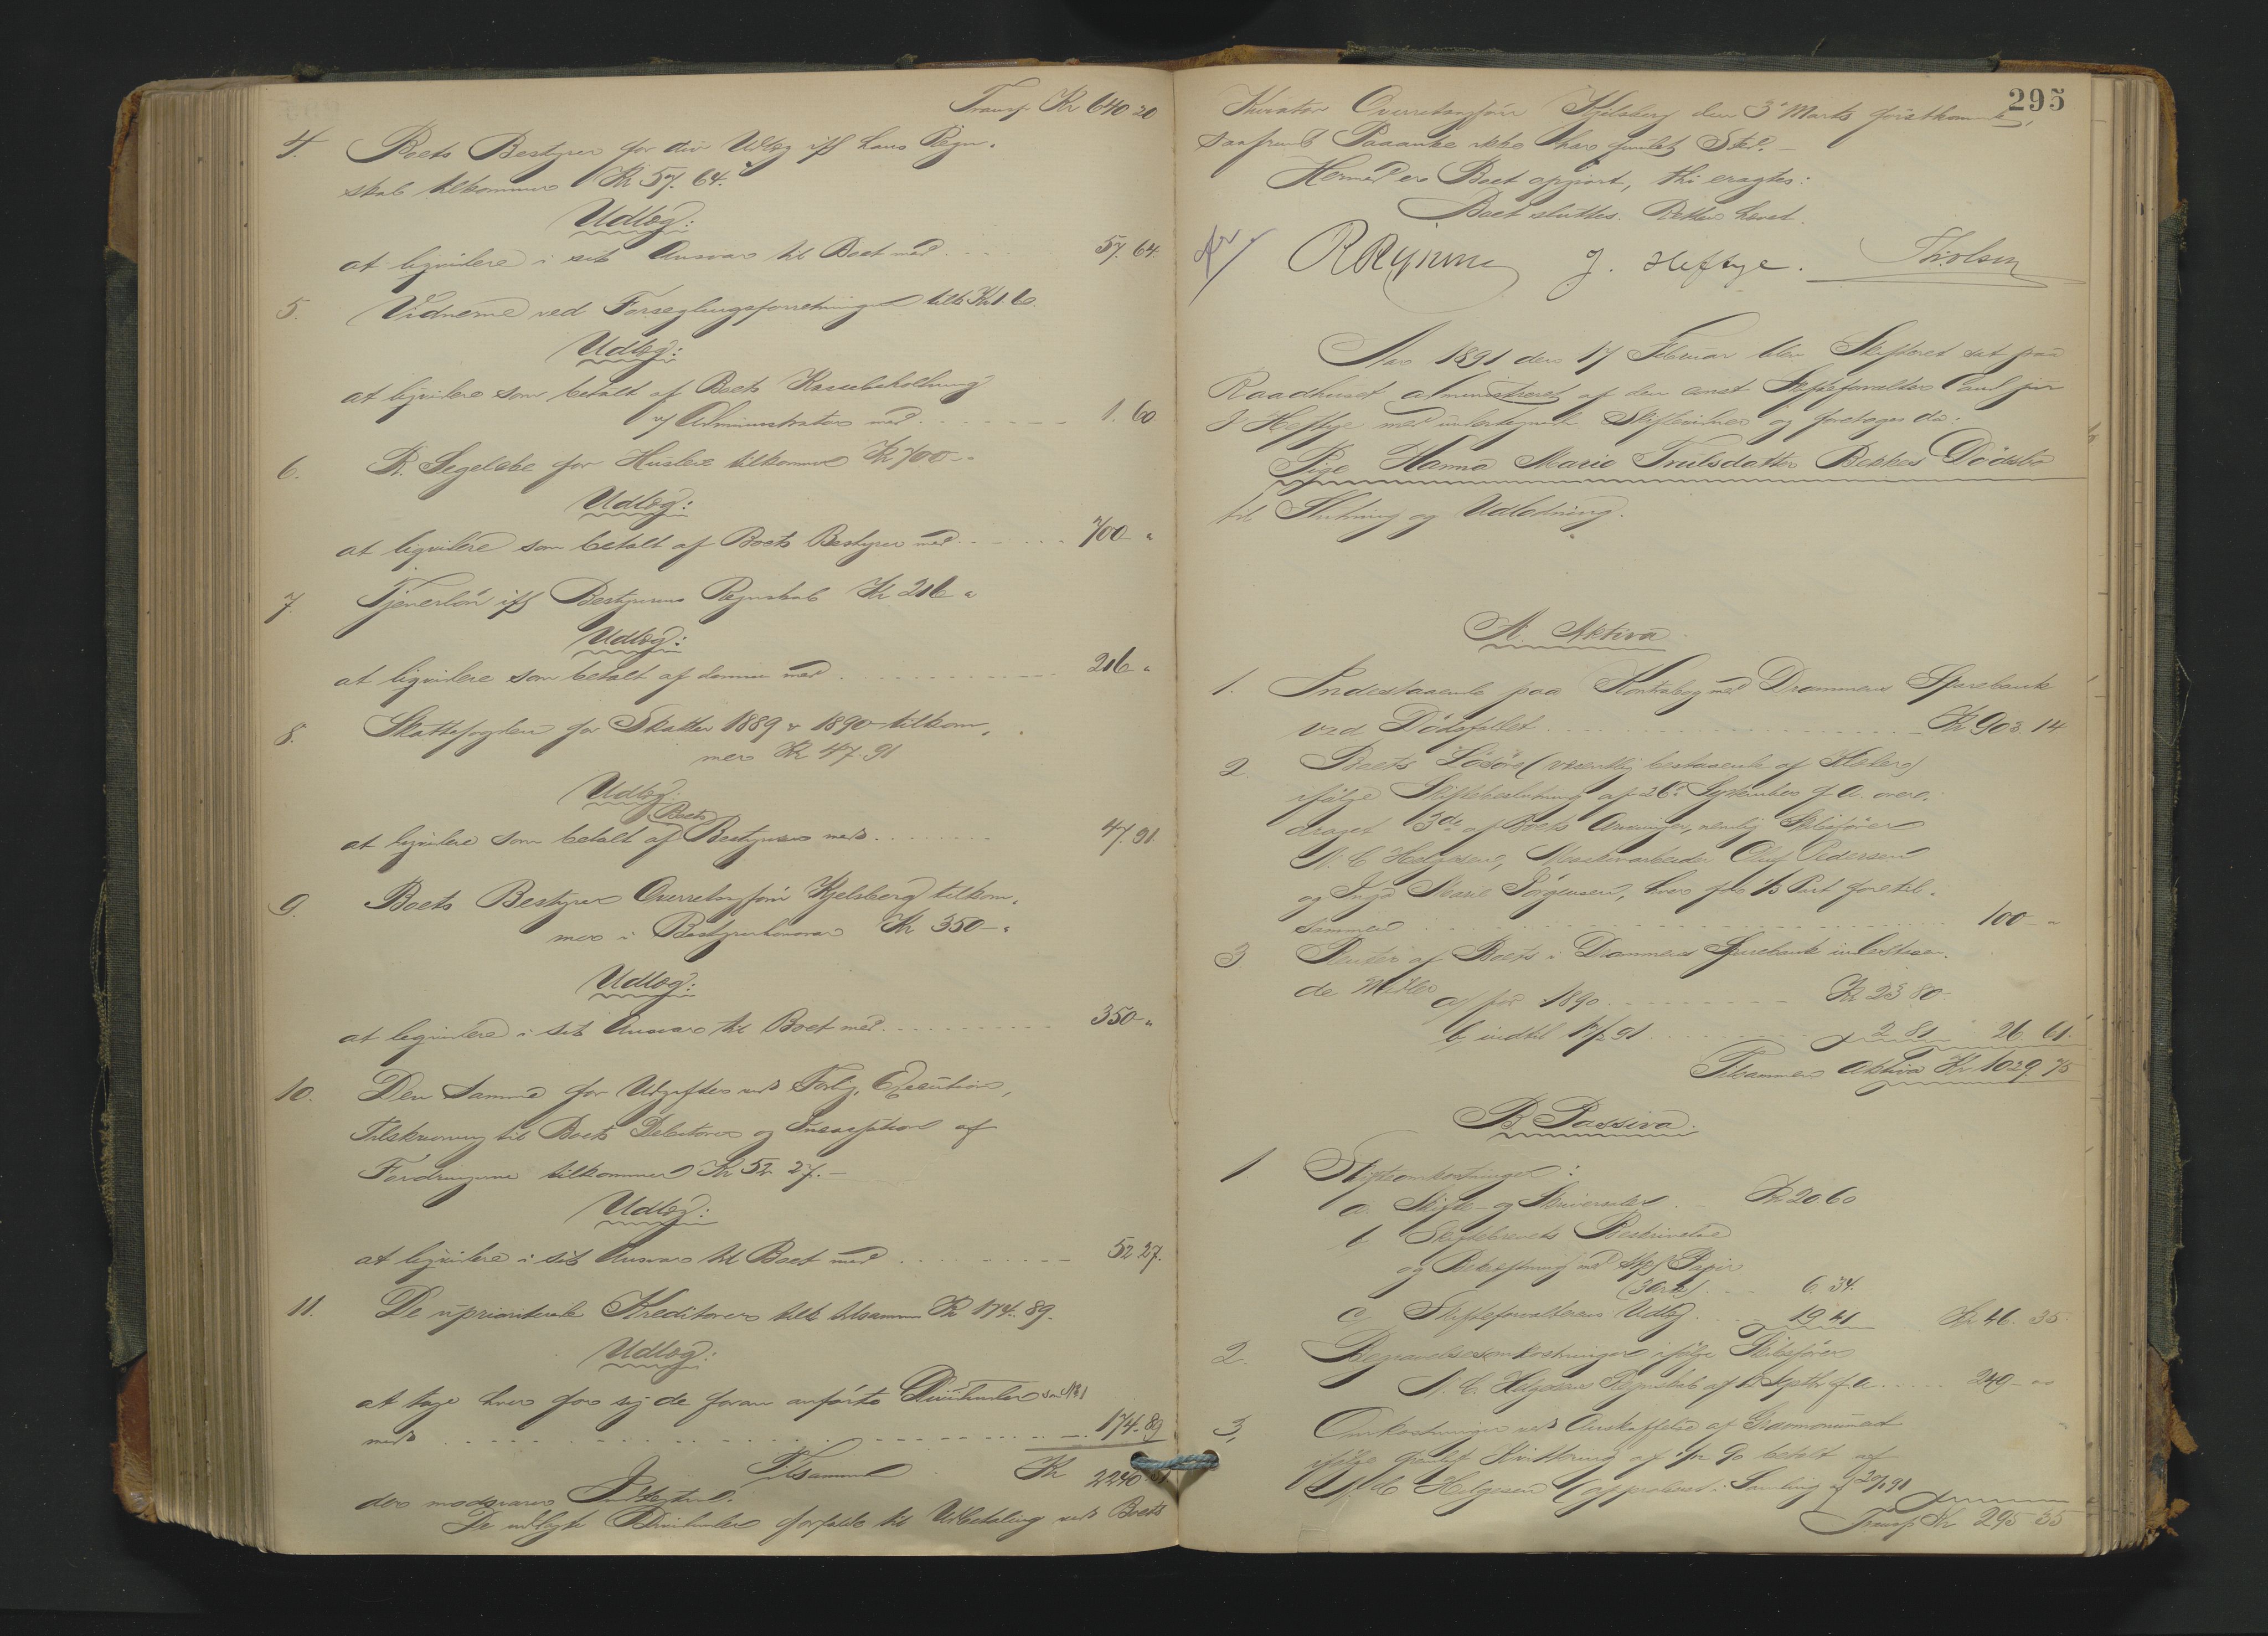 Transp. Kr 640 20
4. Boets Bestyrer for div Udlæg iflg hans Regn-
skab tilkommer Kr 57. 64.
Udlæg:
at liqvidere i sit Ansvar til Boet med 57. 64
5. Vidnerne ved Forseglingsforretningen tilk Kr 1. 60
Udlæg:
at liqvidere som betalt af Boets Kassebeholdning
v/ Administrator med 1. 60
6. R. Segelcke for Husleie tilkommer Kr 700 - "
Udlæg:
at liqvidere som betalt af Boets Bestyrer med 700 "
7. Tjenerløn iflg Bestyrerens Regnskab Kr 216 "
Udlæg:
at liqvidere som betalt af denne med 216 "
8. Skattefogden for Skatter 1889 & 1890 tilkom-
mer Kr 47. 91
Udlæg:
Boets
at liqvidere som betalt af Bestyrer med 47. 91
9. Boets Bestyrer Overretssagfører Kjelsberg tilkom-
mer i Bestyrerhonorar Kr 350 - "
Udlæg:
at liqvidere i sit Ansvar til Boet med 350 - "
10. Den Samme for Udgifter ved Forlig, Execution,
Tilskrivning til Boets Debitorer og Incassation af
Fordringerne tilkommer Kr 52. 27. -
Udlæg:
at liqvidere i sit Ansvar til Boet med 52 27.
11. De upriviterede Kreditorer tilk tilsammen Kr 174. 89.
Udlæg:
at tage hver for sig de foran anførte Dividender
med 174. 89
Tilsammen Kr 2240
der modsvarer Indtægterne.
De udlagte Dividender forfalde til Udbetaling ved Boets
295
Kurator Overretssagfører Kjelsberg den 3' Marts førstkommende,
saafremt Paaanke ikke har fundet Sted. -
Hermed er Boet opgjort, thi eragtes:
Boet sluttes. Retten hævet.
J. Heftye. Th: Olsen
Aar 1891 den 17 Februar blev Skifteret sat paa
Raadhuset administreret af den const Skifteforvalter Cand jur
J Heftye med undertegnede Skiftevidner og foretoges da:
Pige Hanna Marie Trulsdatter Bekkes Dødsbo
til Slutning og Udlodning.
A. Aktiva
1. Indestaaende paa Kontrabog med Drammens Sparebank
ved Dødsfaldet Kr 903. 14
2. Boets Løsøre (væsentlig bestaaende af Klæder)
ifølge Skiftebeslutning af 26' September f. A. over-
draget 3de af Boets Arvinger, nemlig Skibsfører
N. C. Helgesen, Maskinarbeider Oluf Pedersen
og Inga Marie Jørgensen, hver for 1/3 Part for til-
sammen 100 - "
3. Renter af Boets i Drammens Sparebank indestaaen-
de Midler
a/ for 1890 Kr 23 80
b/ indtil 17/2 91 " 2 81 26. 61.
Tilsammen Aktiva Kr 1029 75
B Passiva.
1. Skifteomkostninger:
a. Skifte- og Skriversalær Kr 20 60
b Skiftebrevets Beskrivelse
og Bekræftning med stpl Papir
(3 Ark) 6. 34.
c Skifteforvalterens Udlæg 19 41 Kr 46. 35
2. Begravelsesomkostninger ifølge Skibsfører
N. C. Helgesens Regnskab af Septbr f. A. 249 - "
3. Omkostninger ved Anskaffelse af Gravmonument
ifølge Kvittering af 90 betalt af
N. C. Helgesen (approberet i Samling af 91
Transp Kr 295 35